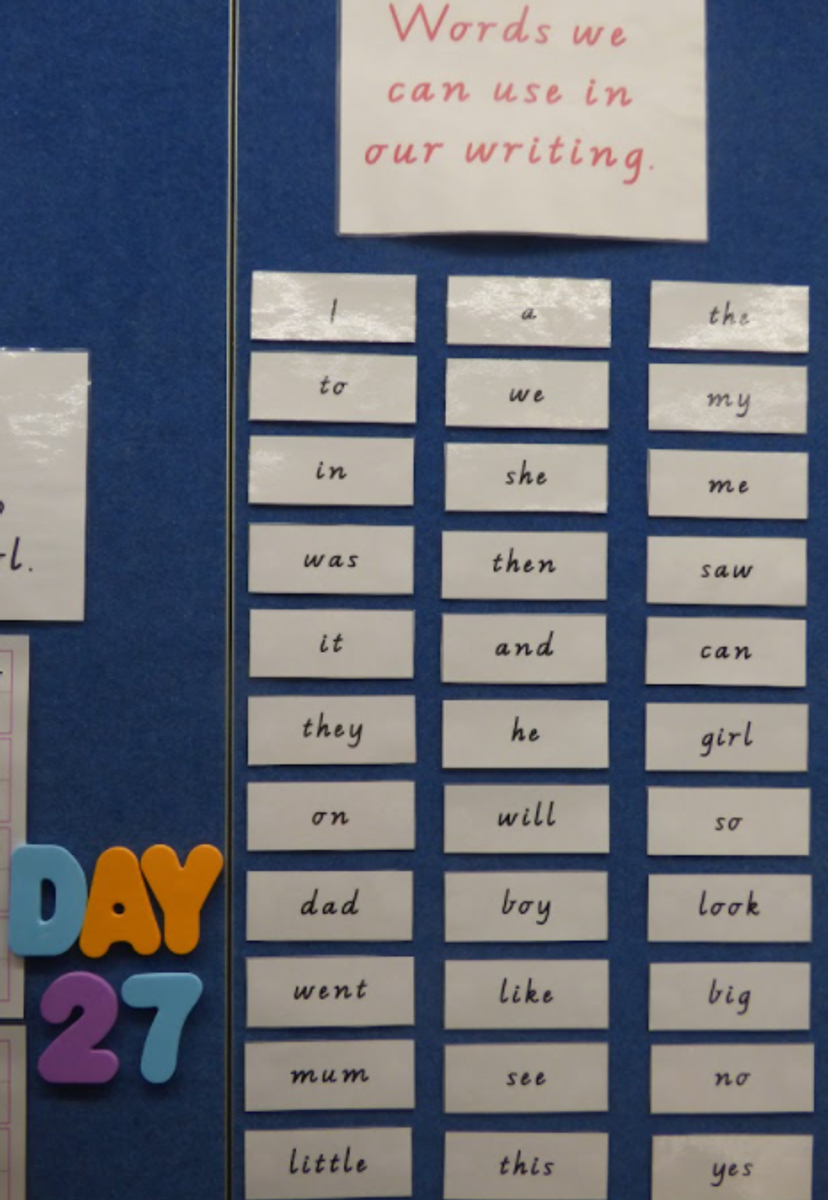 Words we
can use in
our writing.
I a the
to we my
in she me
was then saw
it and can
they he girl
on will so
dad boy look
went like big
mum see no
little this yes
DAY
27